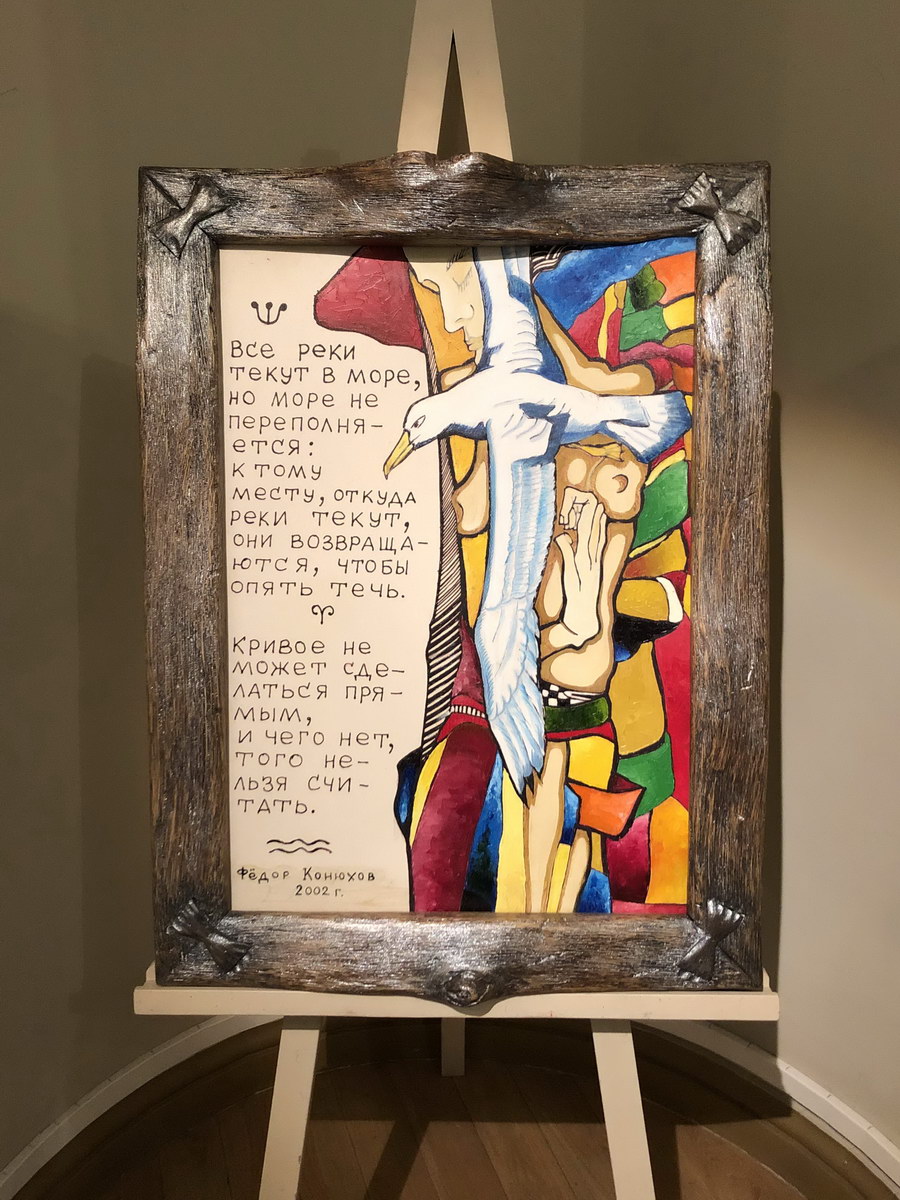 Все реки
текут в море,
но море не
переполня-
ется:
к тому
месту, откуда
реки текут,
они возвраща-
ются, чтобы
опять течь.
Кривое не
может сде-
латься пря-
мым,
и чего нет,
того не-
льзя счи-
тать.
Фёдор Конюхов
2002 г.